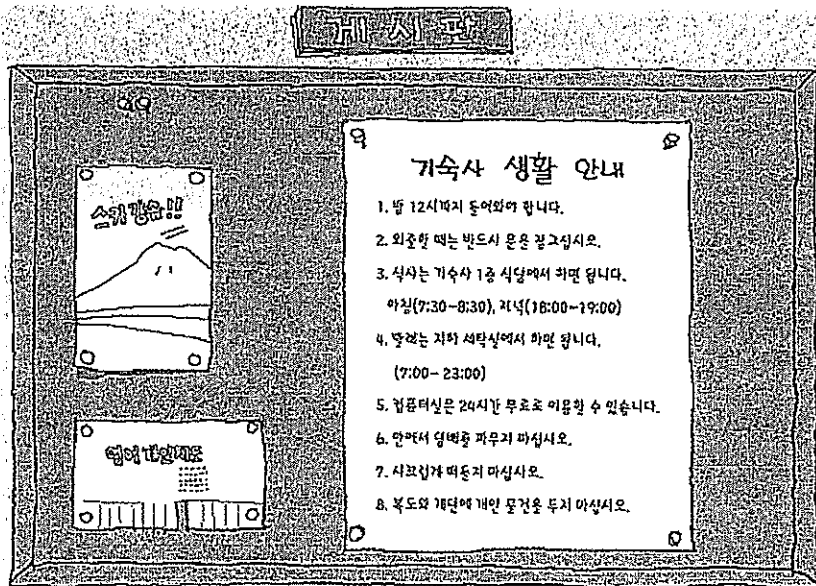 게시판
스키강습!!
영어개인지도
기숙사 생활 안내
1. 밤 12시까지 들어와야 합니다.
2. 외출할 때는 반드시 문을 잠그십시오.
3. 식사는 기숙사 1층 식당에서 하면 됩니다.
아침(7:30-8:30), 저녁(18:00-19:00)
4. 빨래는 지하 세탁실에서 하면 됩니다.
(7:00-23:00)
5. 컴퓨터실은 24시간 무료로 이용할 수 있습니다.
6. 안에서 담배를 피우지 마십시오.
7. 시끄럽게 떠들지 마십시오.
8. 복도와 계단에 개인 물건을 두지 마십시오.